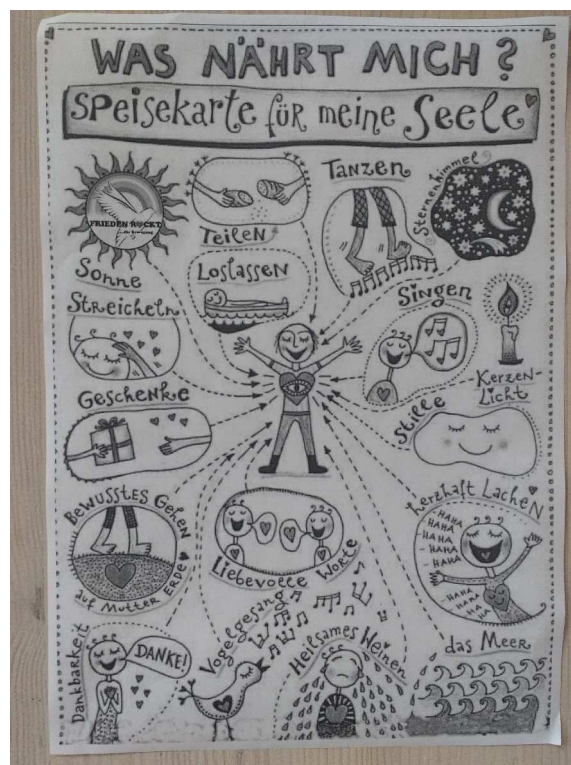 WAS NÄHRT MICH?
SPEISEKARTE FÜR meine Seele
FRIEDEN ROCKT
Sonne
TEILEN
TANZEN
Sternenhimmel
STREICHELN
LOSLASSEN
Singen
KERZEN-
LICHT
GESCHENKE
Stille
BEWUSSTES GEHEN
auf MUTTER ERDE
LIEBEVOLLE WORTE
herzhaft LACHEN
HAHA
HAHA
HAHA
HAHA
HAHA
HAHA
HAHA
HA
Dankbarkeit
DANKE!
Vogelgesang
Heilsames Weinen
das MEER